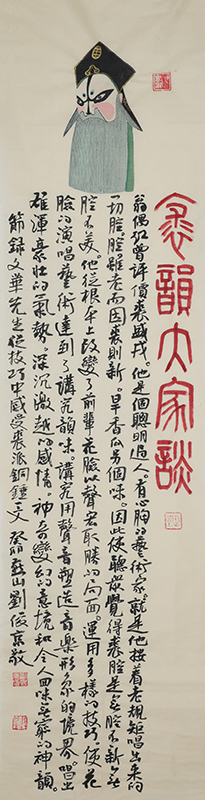 裘韻大家談
翁偶虹曾評價裘盛戎。他是個聰明過人。有心胸的藝術家。就是他按着老規矩唱出來的
一切腔。腔雖老而因裘則新。旱香瓜另個味。因此使聽衆覺得裘腔是無腔不新無
腔不美。他從根本上改變了前輩花臉以聲宏取勝的局面。運用多樣的技巧使花
臉的演唱藝術達到了講究韻味。講究用聲音塑造音樂形象的境界。唱出
雄渾豪壯的氣勢。深沉激越的感情。神奇變幻的意境和令人回味無窮的神韻。
節録文華先生從技巧中感受裘派銅錘文 癸卯燕山劉俊京敬